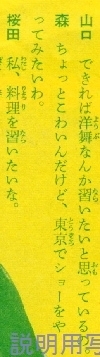 山口　できれば洋舞なんか習いたいと思っている
森　ちょっとこわいんだけど、東京でショーをや
ってみたいわ。
桜田　私、料理を習いたいな。
説明用写